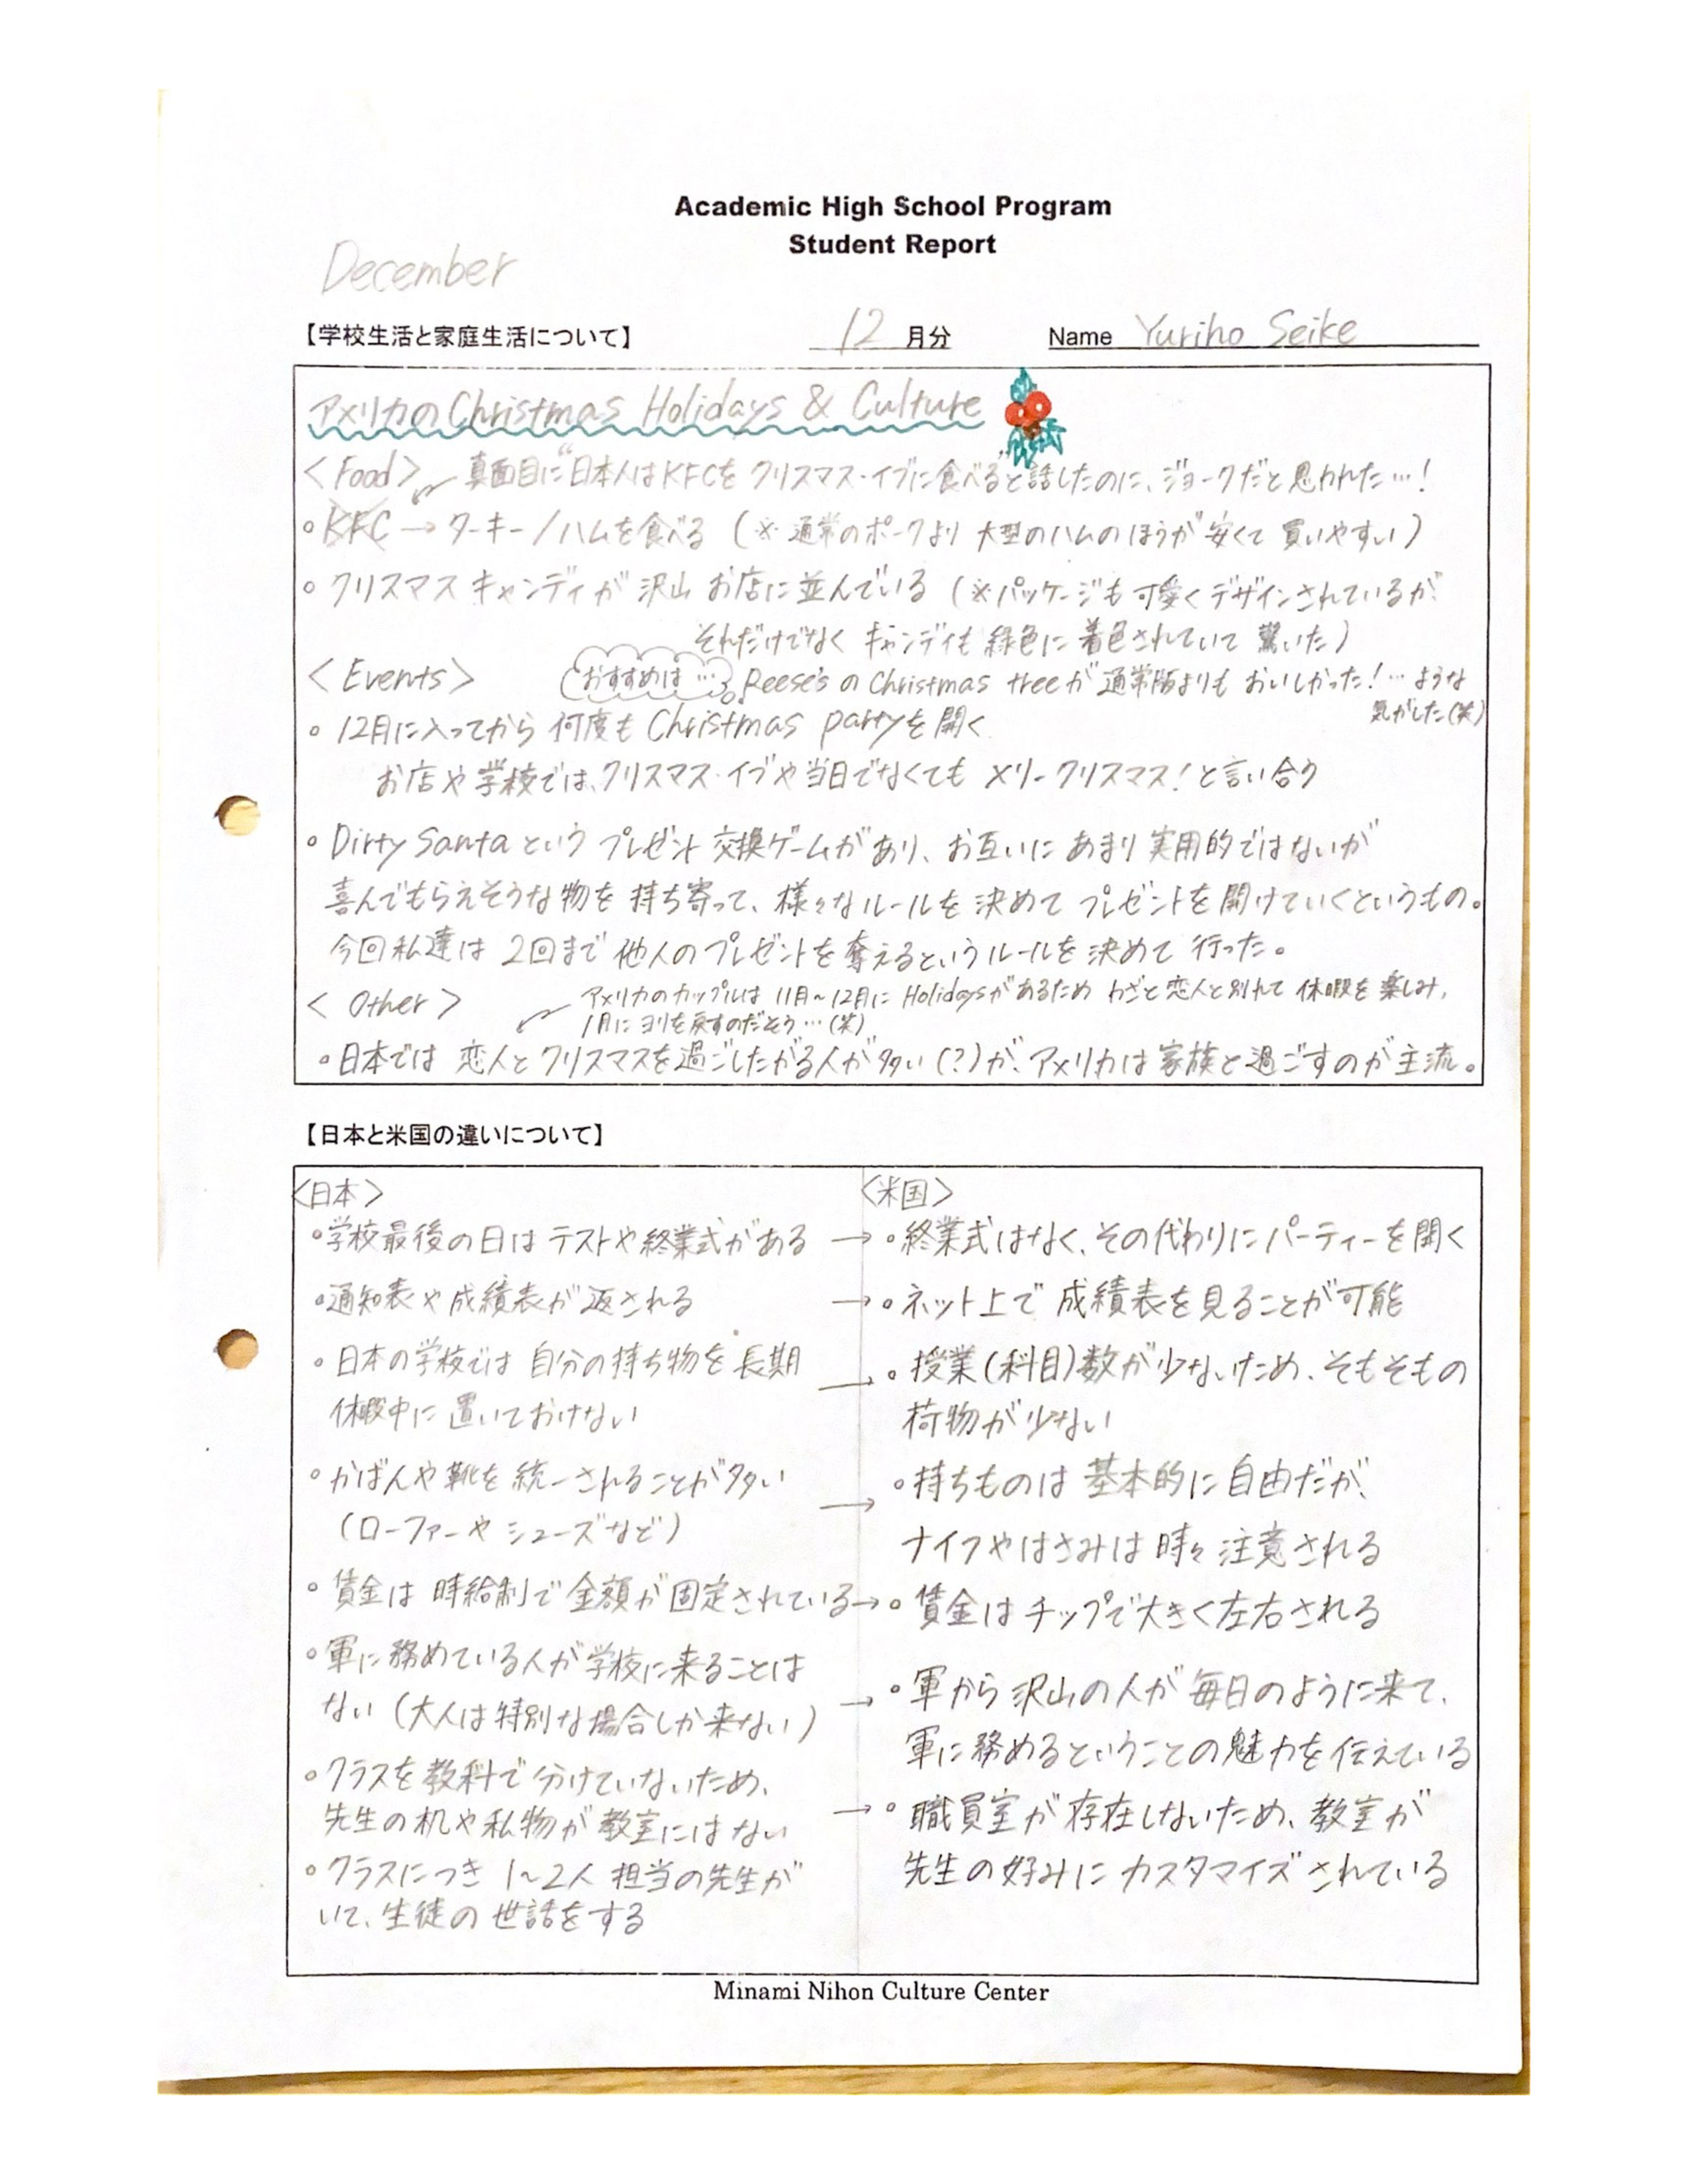 Academic High School Program
Student Report
December
【学校生活と家庭生活について】 12 月分 Name Yuriho Seike
アメリカのChristmas Holidays & Culture
<Food> 真面目に"日本人はKFCをクリスマス・イブに食べる"と話したのに、ジョークだと思われた…!
◦KFC → ターキー/ハムを食べる (※通常のポークより大型のハムのほうが安くて買いやすい)
◦クリスマスキャンディが沢山お店に並んでいる (※パッケージも可愛くデザインされているが
それだけでなくキャンディも緑色に着色されていて驚いた)
<Events> おすすめは… Reese'sのChristmas treeが通常版よりもおいしかった!…ような
気がした(笑)
◦12月に入ってから何度もChristmas partyを開く
お店や学校では、クリスマス・イブや当日でなくてもメリークリスマス!と言い合う
◦Dirty Santaというプレゼント交換ゲームがあり、お互いにあまり実用的ではないが
喜んでもらえそうな物を持ち寄って、様々なルールを決めてプレゼントを開けていくというもの。
今回私達は2回まで他人のプレゼントを奪えるというルールを決めて行った。
<Other> アメリカのカップルは11月~12月にHolidaysがあるためわざと恋人と別れて休暇を楽しみ、
1月にヨリを戻すのだそう…(笑)
◦日本では恋人とクリスマスを過ごしたがる人が多い(?)が、アメリカは家族と過ごすのが主流。
【日本と米国の違いについて】
<日本> <米国>
◦学校最後の日はテストや終業式がある → ◦終業式はなく、その代わりにパーティーを開く
◦通知表や成績表が返される → ◦ネット上で成績表を見ることが可能
◦日本の学校では自分の持ち物を長期 → ◦授業(科目)数が少ないため、そもそもの
休暇中に置いておけない 荷物が少ない
◦かばんや靴を統一されることが多い → ◦持ちものは基本的に自由だが、
(ローファーやシューズなど) ナイフやはさみは時々注意される
◦賃金は時給制で金額が固定されている → ◦賃金はチップで大きく左右される
◦軍に務めている人が学校に来ることは → ◦軍から沢山の人が毎日のように来て、
ない(大人は特別な場合しか来ない) 軍に務めるということの魅力を伝えている
◦クラスを教科で分けていないため、 → ◦職員室が存在しないため、教室が
先生の机や私物が教室にはない 先生の好みにカスタマイズされている
◦クラスにつき1~2人担当の先生が
いて、生徒の世話をする
Minami Nihon Culture Center